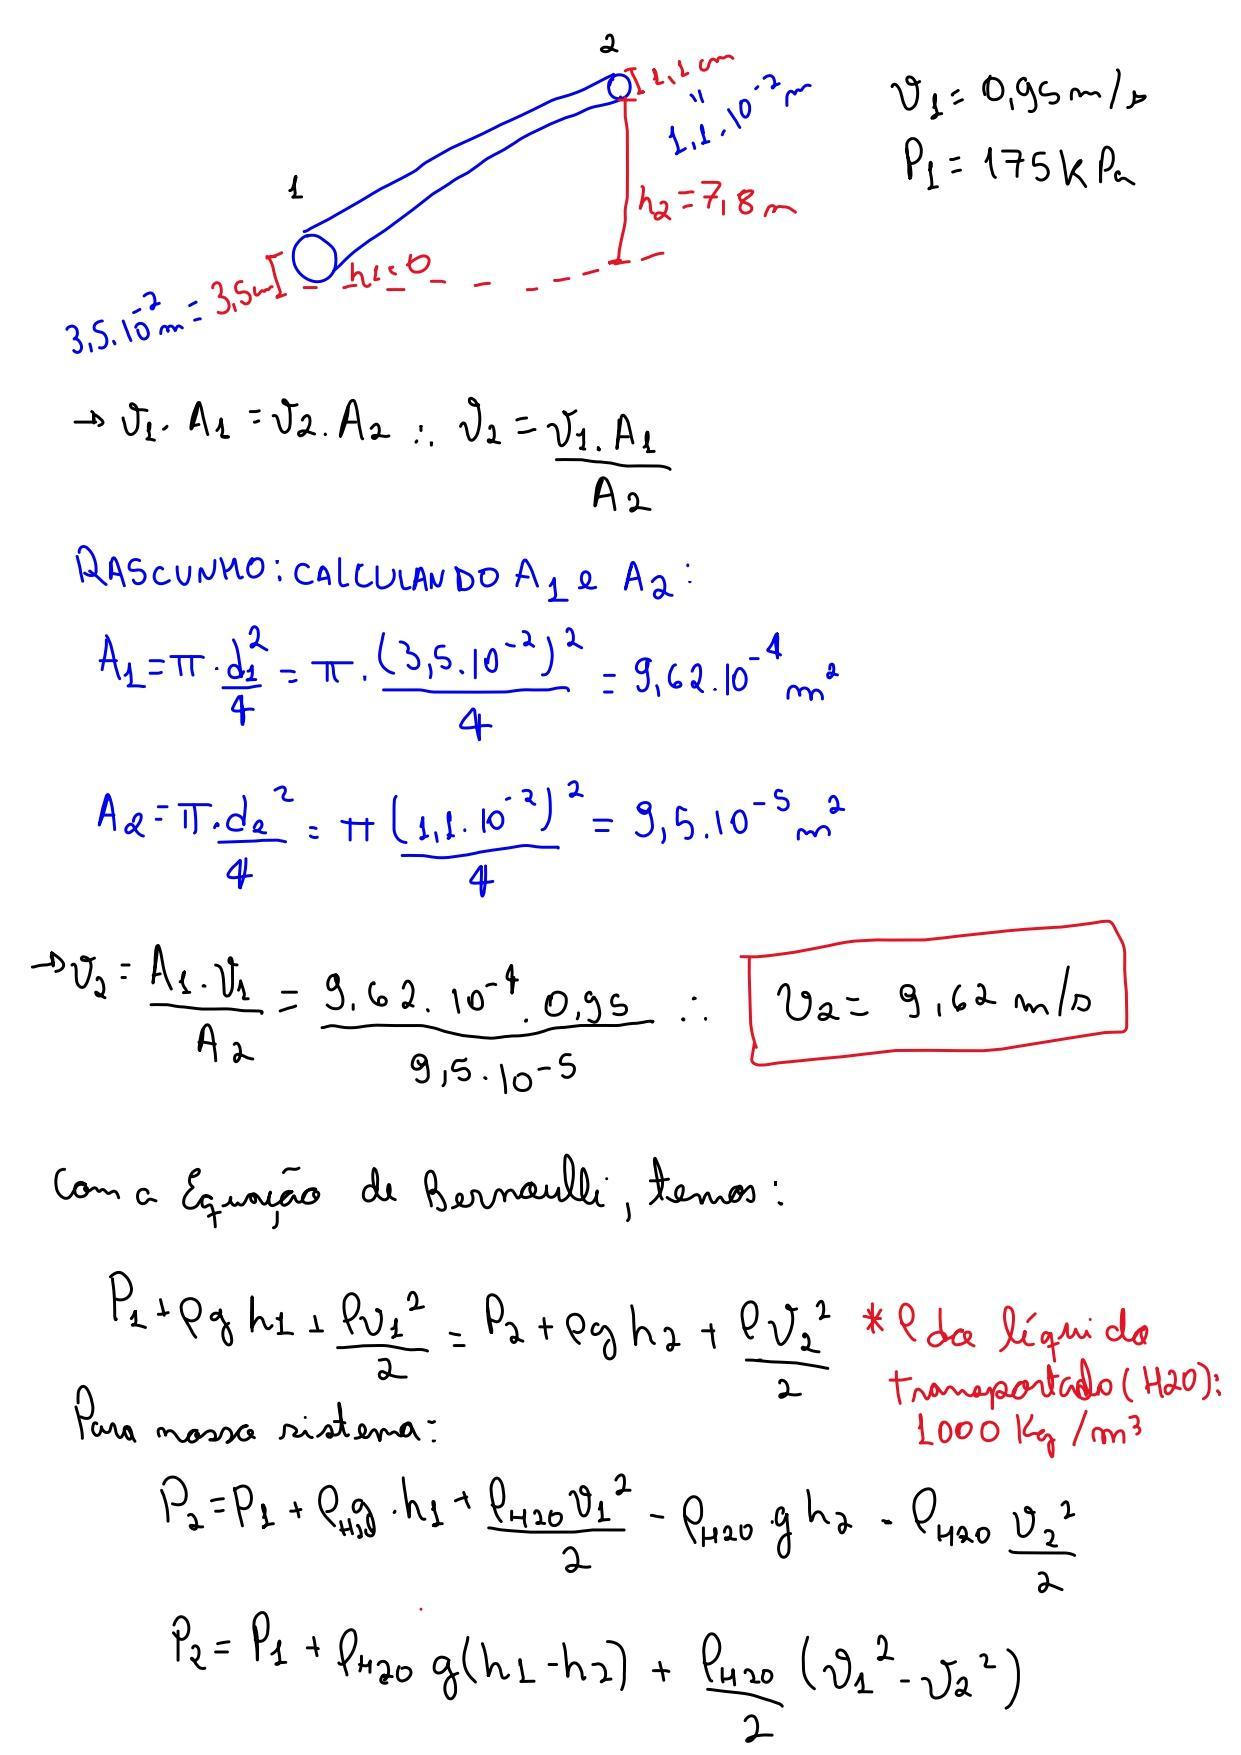 2
1,1 cm
"
1,1.10⁻² m
v₁ = 0,95 m/s
P₁ = 175 kPa
1
h₂ = 7,8 m
h₁ = 0
3,5.10⁻² m = 3,5 cm
→ v₁ . A₁ = v₂ . A₂ ∴ v₂ = v₁ . A₁ / A₂
RASCUNHO: CALCULANDO A₁ e A₂ :
A₁ = π . d₁²/4 = π . (3,5.10⁻²)²/4 = 9,62.10⁻⁴ m²
A₂ = π . d₂²/4 = π (1,1.10⁻²)²/4 = 9,5.10⁻⁵ m²
→ v₂ = A₁ . v₁ / A₂ = 9,62.10⁻⁴ . 0,95 / 9,5.10⁻⁵ ∴ v₂ = 9,62 m/s
Com a Equação de Bernoulli, temos:
P₁ + ρgh₁ + ρv₁²/2 = P₂ + ρgh₂ + ρv₂²/2
* ρ do líquido
transportado (H2O):
1000 Kg/m³
Para nosso sistema:
P₂ = P₁ + ρH₂O g . h₁ + ρH2O v₁²/2 - ρH2O . g h₂ - ρH2O v₂²/2
P₂ = P₁ + ρH2O g(h₁ - h₂) + ρH2O/2 (v₁² - v₂²)